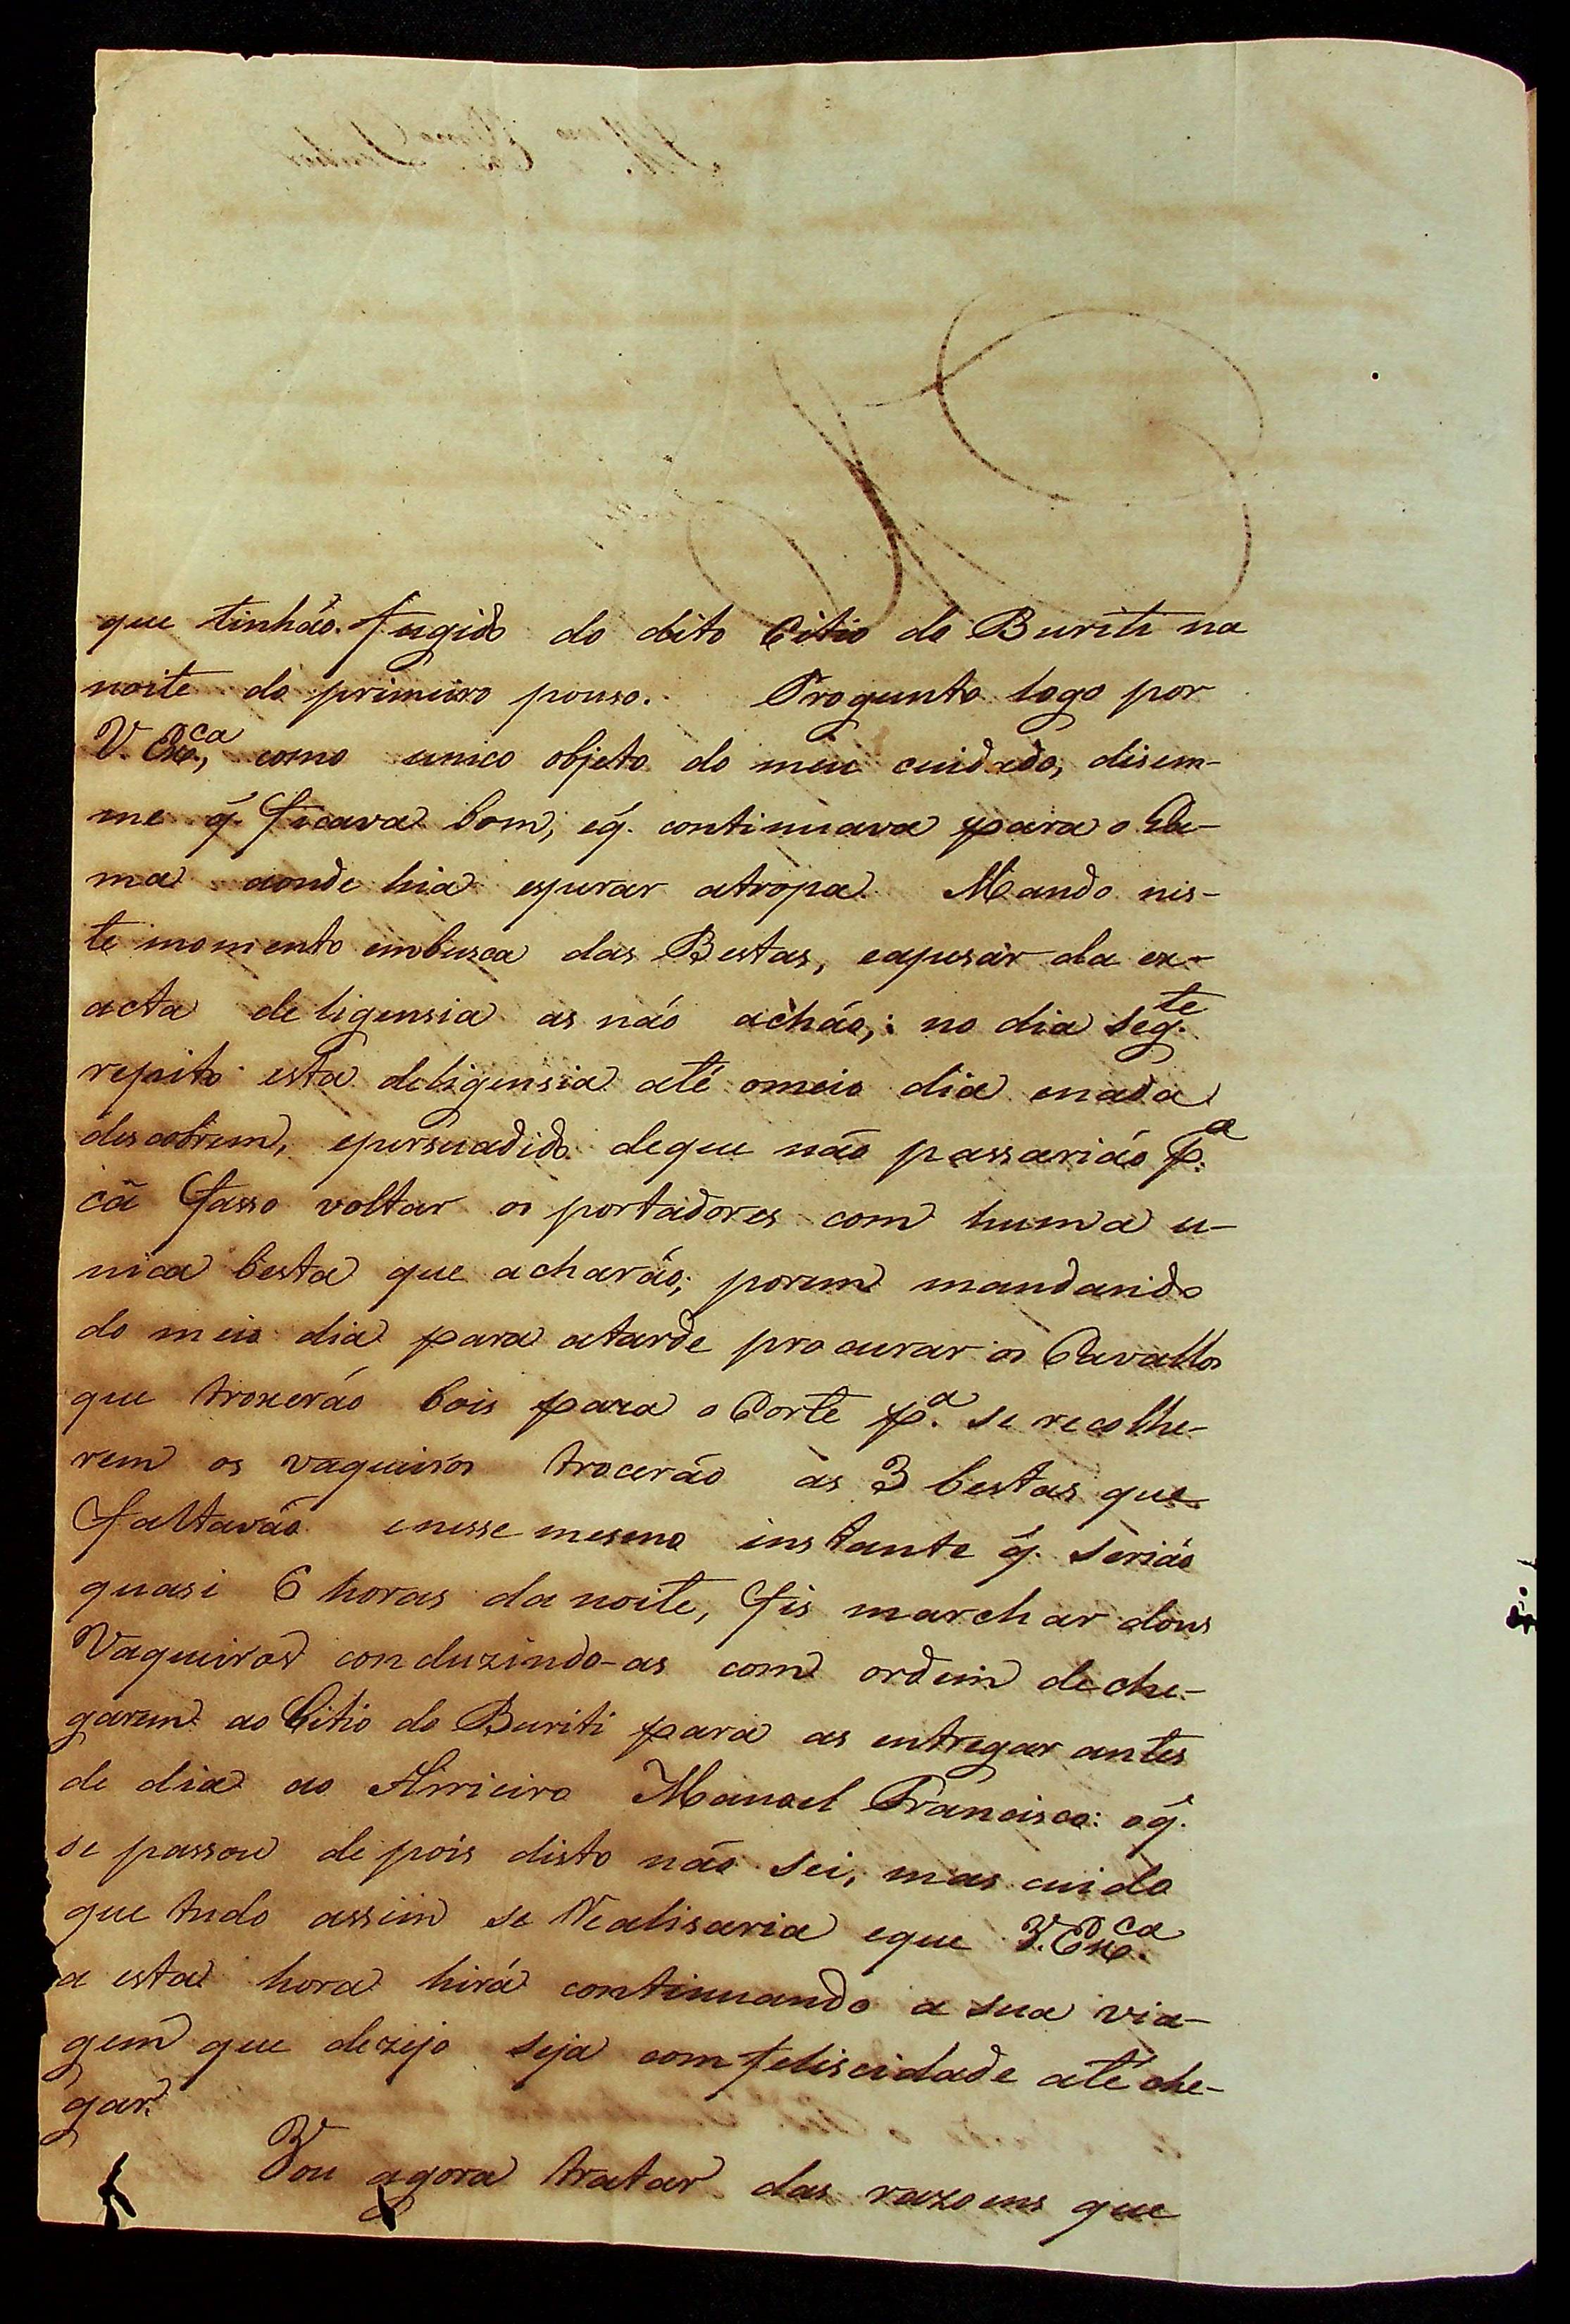 que tinháo fugido do dito Citio do Buriti na
noite do primeiro pouso. Progunto logo por
V. Exc.ᶜᵃ, como unico objeto do meu cuidado, disem-
me q̃. ficava bom, e q̃. continuava para o Ga-
ma aonde hia esperar atropa. Mando nis-
te momento embusca das Bestas, eapesar da ex-
acta deligensia as náo acháo,: no dia seg.ᵗᵉ
repito esta deligensia até omeio dia enada
descobrem, epersuadido deque náo passariáo p.ᵃ
cá fasso voltar os portadores com huma u-
nica besta que acharáo; porem mandando
do meio dia para atarde procurar os Cavallos
que troxeráo bois para o Corte p.ᵃ se recolhe-
rem os vaqueiros troceráo as 3 bestas que
faltaváo enesse mesmo instante q̃. seriáo
quasi 6 horas da noite, fis marchar dous
Vaqueiros conduzindo-as com ordem deche-
garem ao Citio do Buriti para as entregar antes
de dia ao Arrieiro Manoel Francisco: oq̃.
se passou depois disto náo sei, mas cuido
que tudo assim se Realisaria eque V. Exc.ᶜᵃ
a esta hora hirá continuando a sua via-
gem que dezejo seja com feliscidade até che-
gar.
Vou agora tratar das razoens que